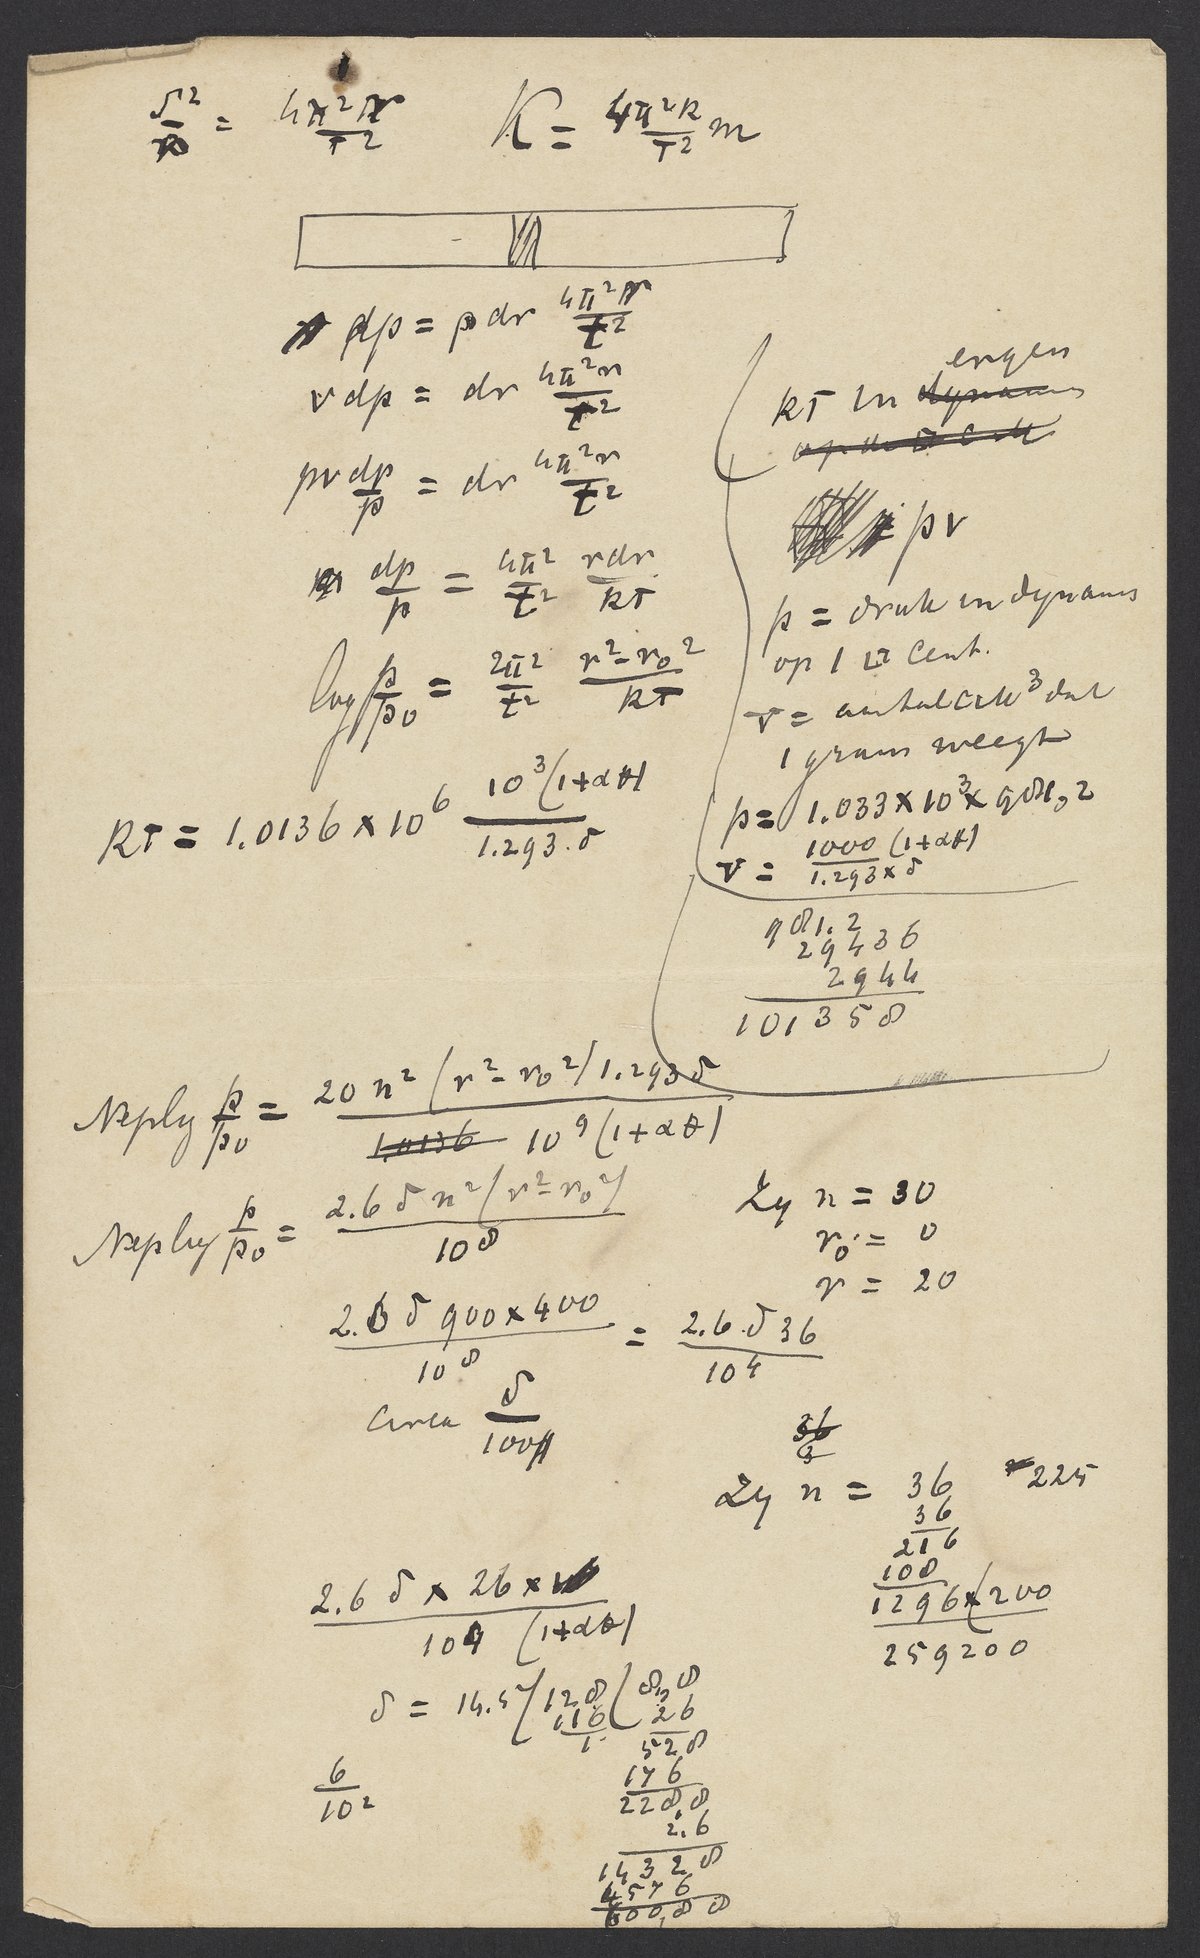 δ²/r = 4π²r/T²    K = 4π²R/T² m
dp = ρ dr 4π²r/t²
v dp = dr 4π²r/t²
pv dp/p = dr 4π²r/t²
dp/p = 4π²/t² rdr/RT
log p/p₀ = 2π²/t² r²-r₀²/RT
RT = 1.0136 × 10⁶ 10³(1+αt)/1.293.δ
ergen
RT in dynamis
= pv
p = druk in dynamis
op 1 □ Cent.
v = aantal cM³ dat
1 gram weegt
p = 1.033 × 10³ × 981,2
v = 1000 (1+αt)/1.293×δ
981.2
29436
2944
101358
Neplog p/p₀ = 20 n² (r²-r₀²) 1.293 δ/1.0136 10⁹ (1+αt)
Neplog p/p₀ = 2.6 δ n² (r²-r₀²)/10⁸
Zy n = 30
r₀ = 0
r = 20
2.6 δ 900×400/10⁸ = 2.6.δ 36/10⁴
circa δ/100
36
3
Zy n = 36    225
36
216
108
1296×(200
259200
2.6 δ × 26 ×/10⁴ (1+αt)
δ = 14.5/128(8,8
116
1
26
528
176
228,8
2.6
14328
4576
600,88
6/10²